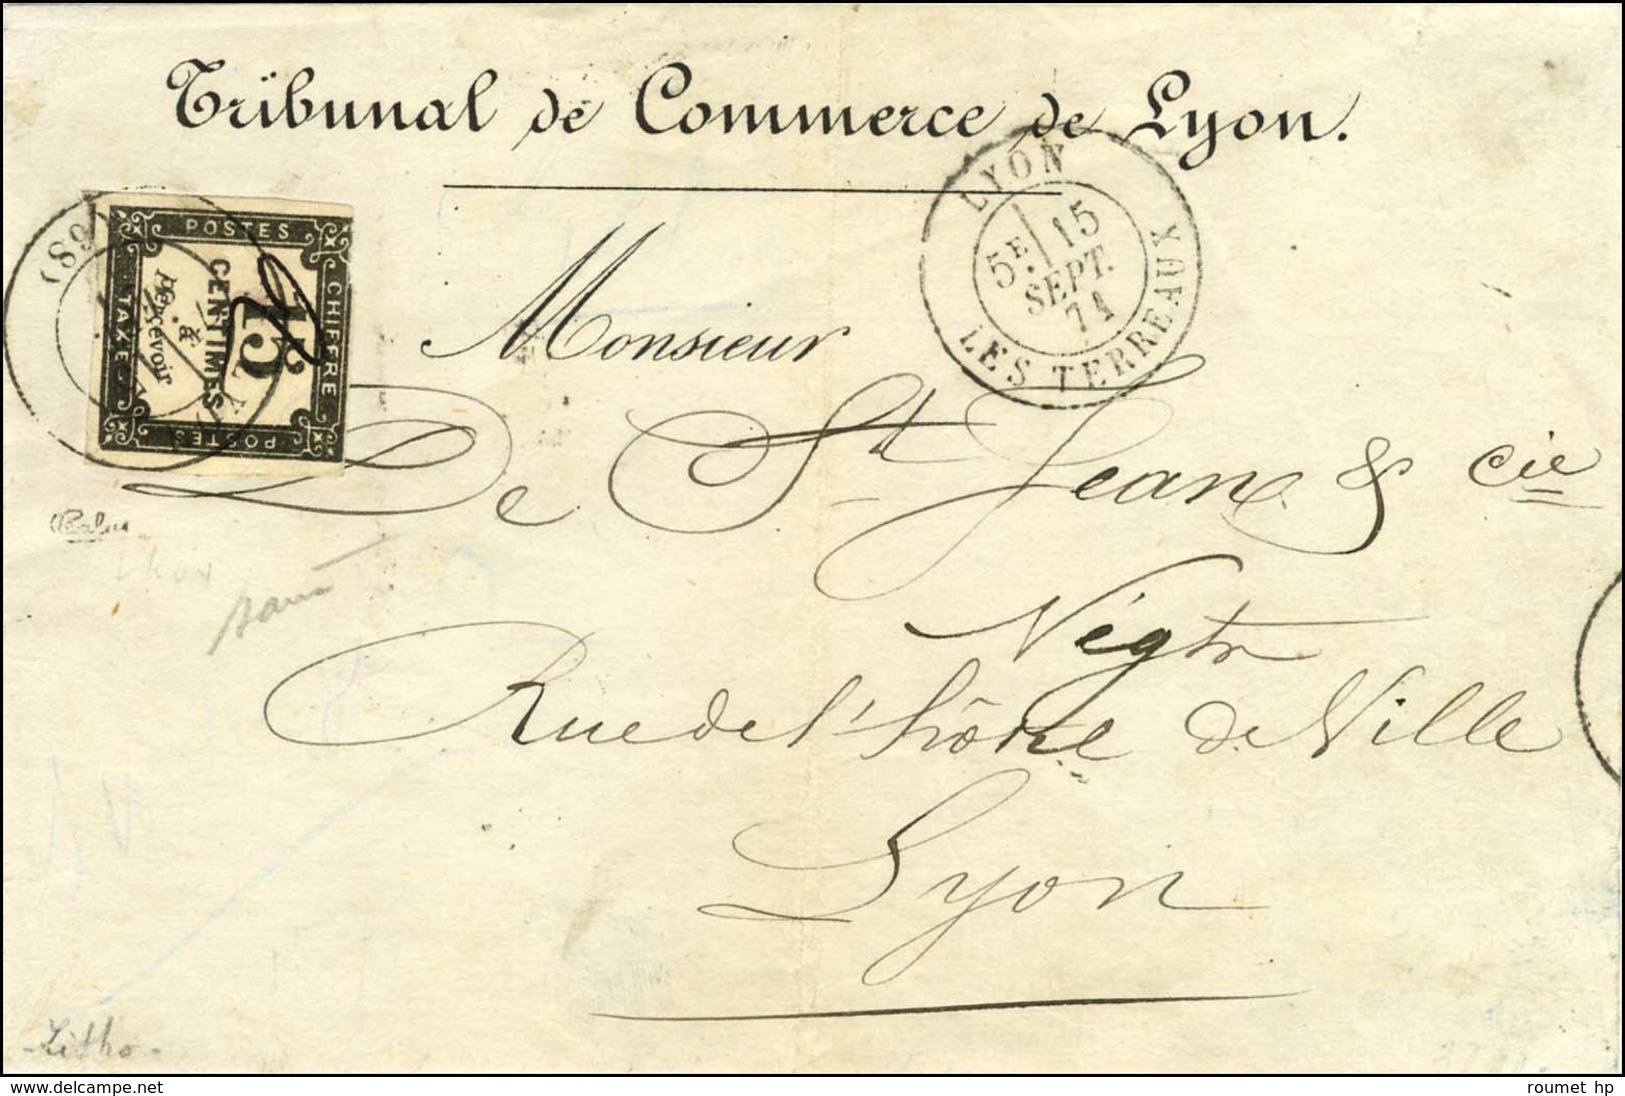 Tribunal de Commerce de Lyon.
LYON
5E 15
SEPT.
71
LES TERREAUX
(68)
POSTES
CHIFFRE
TAXE
POSTES
15
CENTIMES
à
percevoir
Monsieur
De St Jean & cie
Négts
Rue de l'hôtel de Ville
Lyon
- Litho -
www.delcampe.net
roumet hp